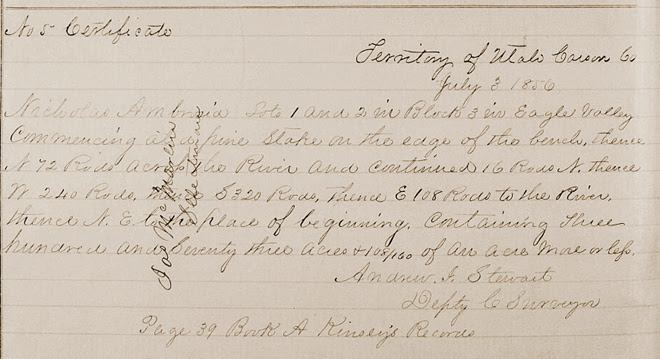 No 5 Certificate
Territory of Utah Carson Co
July 3 1856
Nicholas Ambrosia Lots 1 and 2 in Block 3 in Eagle Valley
Commencing at a pine Stake on the edge of the bench, thence
N 72 Rods across the River and continued 16 Rods N. thence
W 240 Rods, thence S 320 Rods, thence E 108 Rods to the River,
thence N. E. to place of beginning. Containing three
hundred and Seventy three acres + 108/160 of an acre More or less.
Andrew. J. Stewart
Depty C Surveyor
Page 39 Book A Kinsey's Records
Jas Mc Marlin